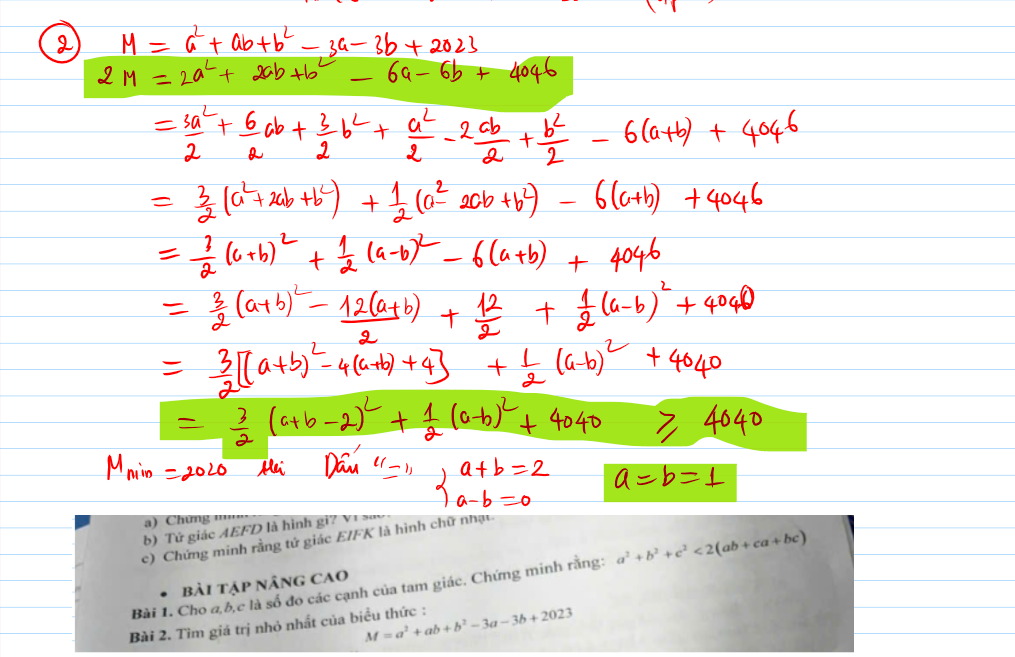 ② M = a² + ab + b² - 3a - 3b + 2023
2M = 2a² + 2ab + b² - 6a - 6b + 4046
= 3a²/2 + 6/2 ab + 3/2 b² + a²/2 - 2ab/2 + b²/2 - 6(a+b) + 4046
= 3/2 (a² + 2ab + b²) + 1/2 (a² - 2ab + b²) - 6(a+b) + 4046
= 3/2 (a+b)² + 1/2 (a-b)² - 6(a+b) + 4046
= 3/2 (a+b)² - 12(a+b)/2 + 12/2 + 1/2 (a-b)² + 4040
= 3/2 [(a+b)² - 4(a+b) + 4] + 1/2 (a-b)² + 4040
= 3/2 (a+b-2)² + 1/2 (a-b)² + 4040 ≥ 4040
Mmin = 2020 khi Dấu "=" { a+b=2 a=b=1
a-b=0
a) Chứng
b) Tứ giác AEFD là hình gì? Vì sao
c) Chứng minh rằng tứ giác EIFK là hình chữ nhật.
• BÀI TẬP NÂNG CAO
Bài 1. Cho a,b,c là số đo các cạnh của tam giác. Chứng minh rằng: a² + b² + c² < 2(ab + ca + bc)
Bài 2. Tìm giá trị nhỏ nhất của biểu thức :
M = a² + ab + b² - 3a - 3b + 2023